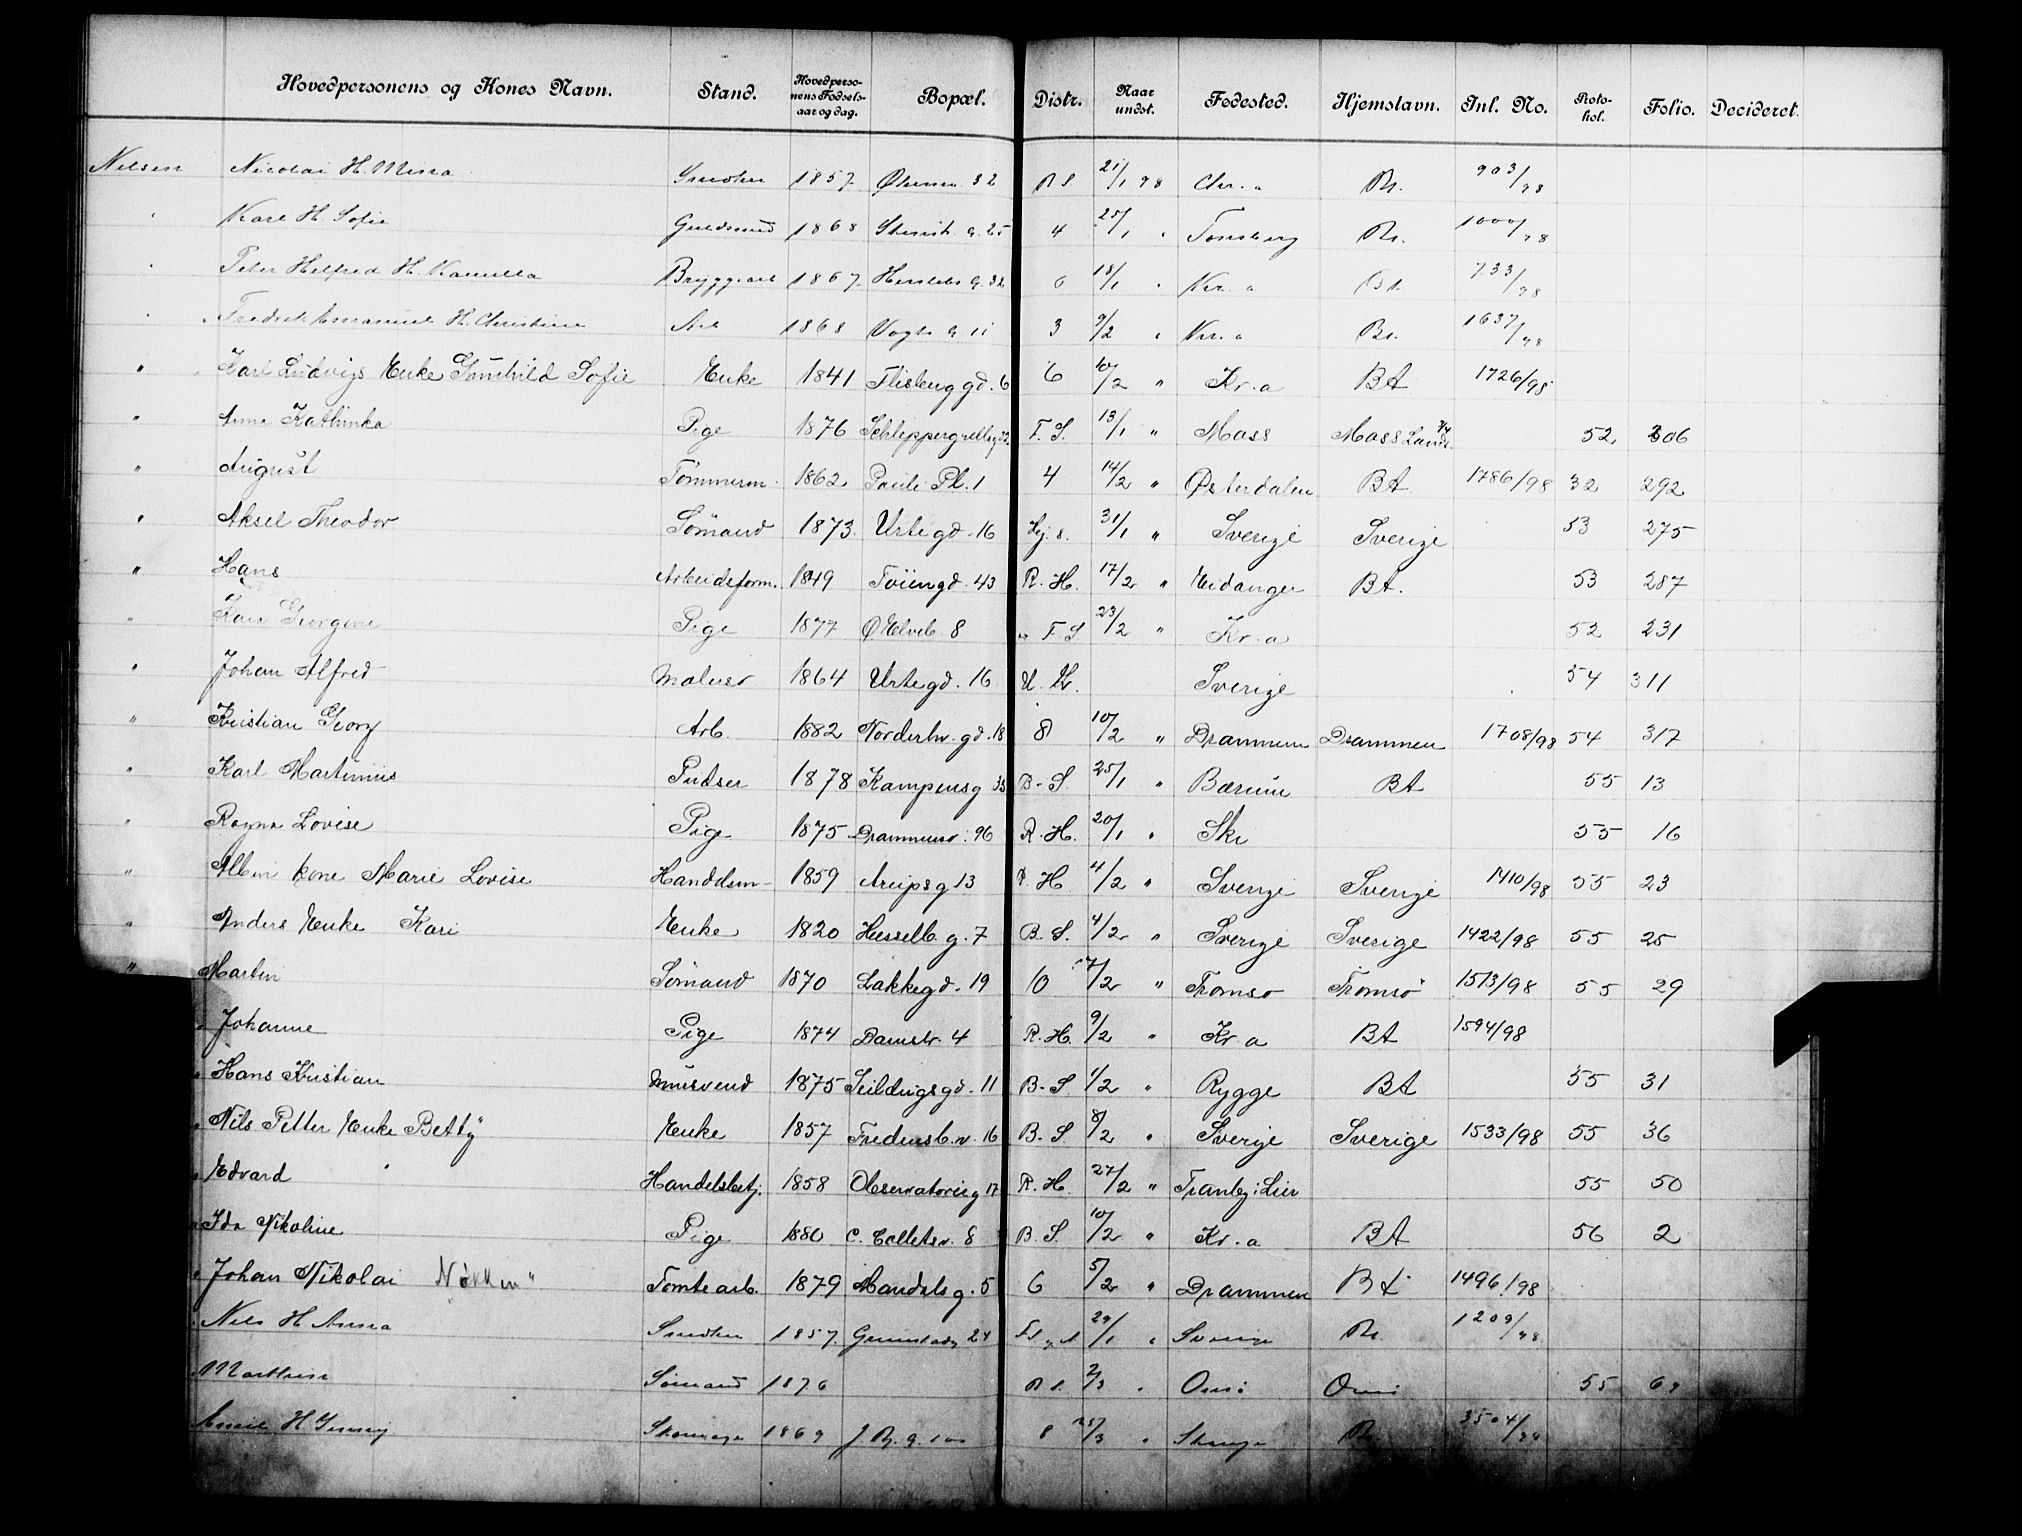 Hovedpersonens og Kones Navn. Stand. Hovedperso-nens Fødsels-aar og dag. Bopæl. Distr. Naar undst. Fødested. Hjemstavn. Inl. No. Proto-kol. Folio. Decideret.
Nilsen Nicolai H. Mina 1857 32 B S 21/1 98 Chr. a Bt. 903/98
" Karl H. Sofie Guldsmed 1868 g. 25 4 25/1 " Tønsberg Bt. 1000/98
" Peter Helfred H. Kamilla Bryggearb 1867 Herslebs g. 32 6 18/1 " Kr. a Bt. 733/98
" Fredrik Emanuel H. Christine Arb 1868 Vogts g 11 3 9/2 " Kr. a Bt. 1637/98
" Karl Ludvigs Enke Gunhild Sofie Enke 1841 Flisberg gd. 6 6 10/2 " Kr. a Bt 1726/98
" Anna Kathinka Pige 1876 F. S. 13/1 " Moss Moss Lands 52 206
" August Tømmerm. 1862 Pauli Pl. 1 4 14/2 " Østerdalen Bt. 1786/98 32 292
" Aksel Theodor Sømand 1873 Urtegd. 16 31/1 " Sverige Sverige 53 275
" Hans Arbeidsform. 1849 Tøiengd. 43 R. H. 17/2 " Eidanger Bt. 53 287
" Georgine Pige 1877 Ø Elveb. 8 F. S 23/2 " Kr. a 52 231
" Johan Alfred Malersv 1864 Urtegd. 16 Sverige 54 311
" Kristian Georg Arb. 1882 Norderhv. gd. 18 8 10/2 " Drammen Drammen 1708/98 54 317
" Karl Martinius Pudser 1878 Kampensg 33 B. S. 25/1 " Bærum Bt 55 13
" Ragna Lovise Pige 1875 Drammensv. 96 R. H. 20/1 " Ski 55 16
" Albin kone Marie Lovise Handelsm 1859 Arups g 13 R. H 4/2 " Sverige Sverige 1410/98 55 23
" Anders Enke Kari Enke 1820 Hesselb. g. 7 B. S. 4/2 " Sverige Sverige 1422/98 55 25
" Martin Sømand 1870 Lakkegd. 19 10 7/2 " Tromsø Tromsø 1513/98 55 29
" Johanne Pige 1874 Damstr. 4 R. H. 9/2 " Kr. a Bt 1594/98
" Hans Kristian Mursvend 1875 Seildugsgd. 11 B. S. 1/2 " Rygge Bt 55 31
" Nils Petter Enke Betty Enke 1857 Fredensb. v. 16 B. S. 8/2 " Sverige Sverige 1533/98 55 36
" Edvard Handelsbetj. 1858 Observatorieg 17 R. H. 27/2 " Tranby i Lier 55 50
" Ida Nikoline Pige 1880 C. Colletsv. 8 B. S. 10/2 " Kr. a Bt 56 2
" Johan Nikolai Tomtearb. 1879 Mandalsg. 5 6 5/2 " Drammen Bt 1496/98
Nils H. Anna 1857 24 29/1 " Sverige Bt. 1209/98
Sømand 1876 2/3 " Onsø Onsø 55
Emil H. Jenny 1869 J. B. g. 8 25/3 " Bt 3504/98